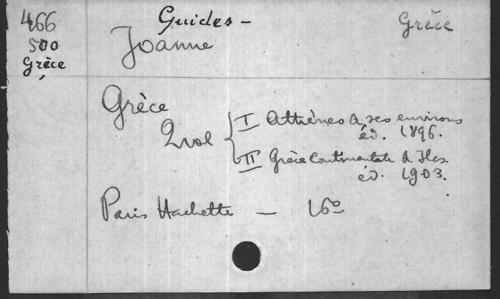 466 Guides - Grèce
500 Joanne
Grèce
Grèce
2 vol { I Athènes & ses environs
éd. 1896.
II Grèce Continentale & Iles.
éd. 1903.
Paris Hachette - 16º